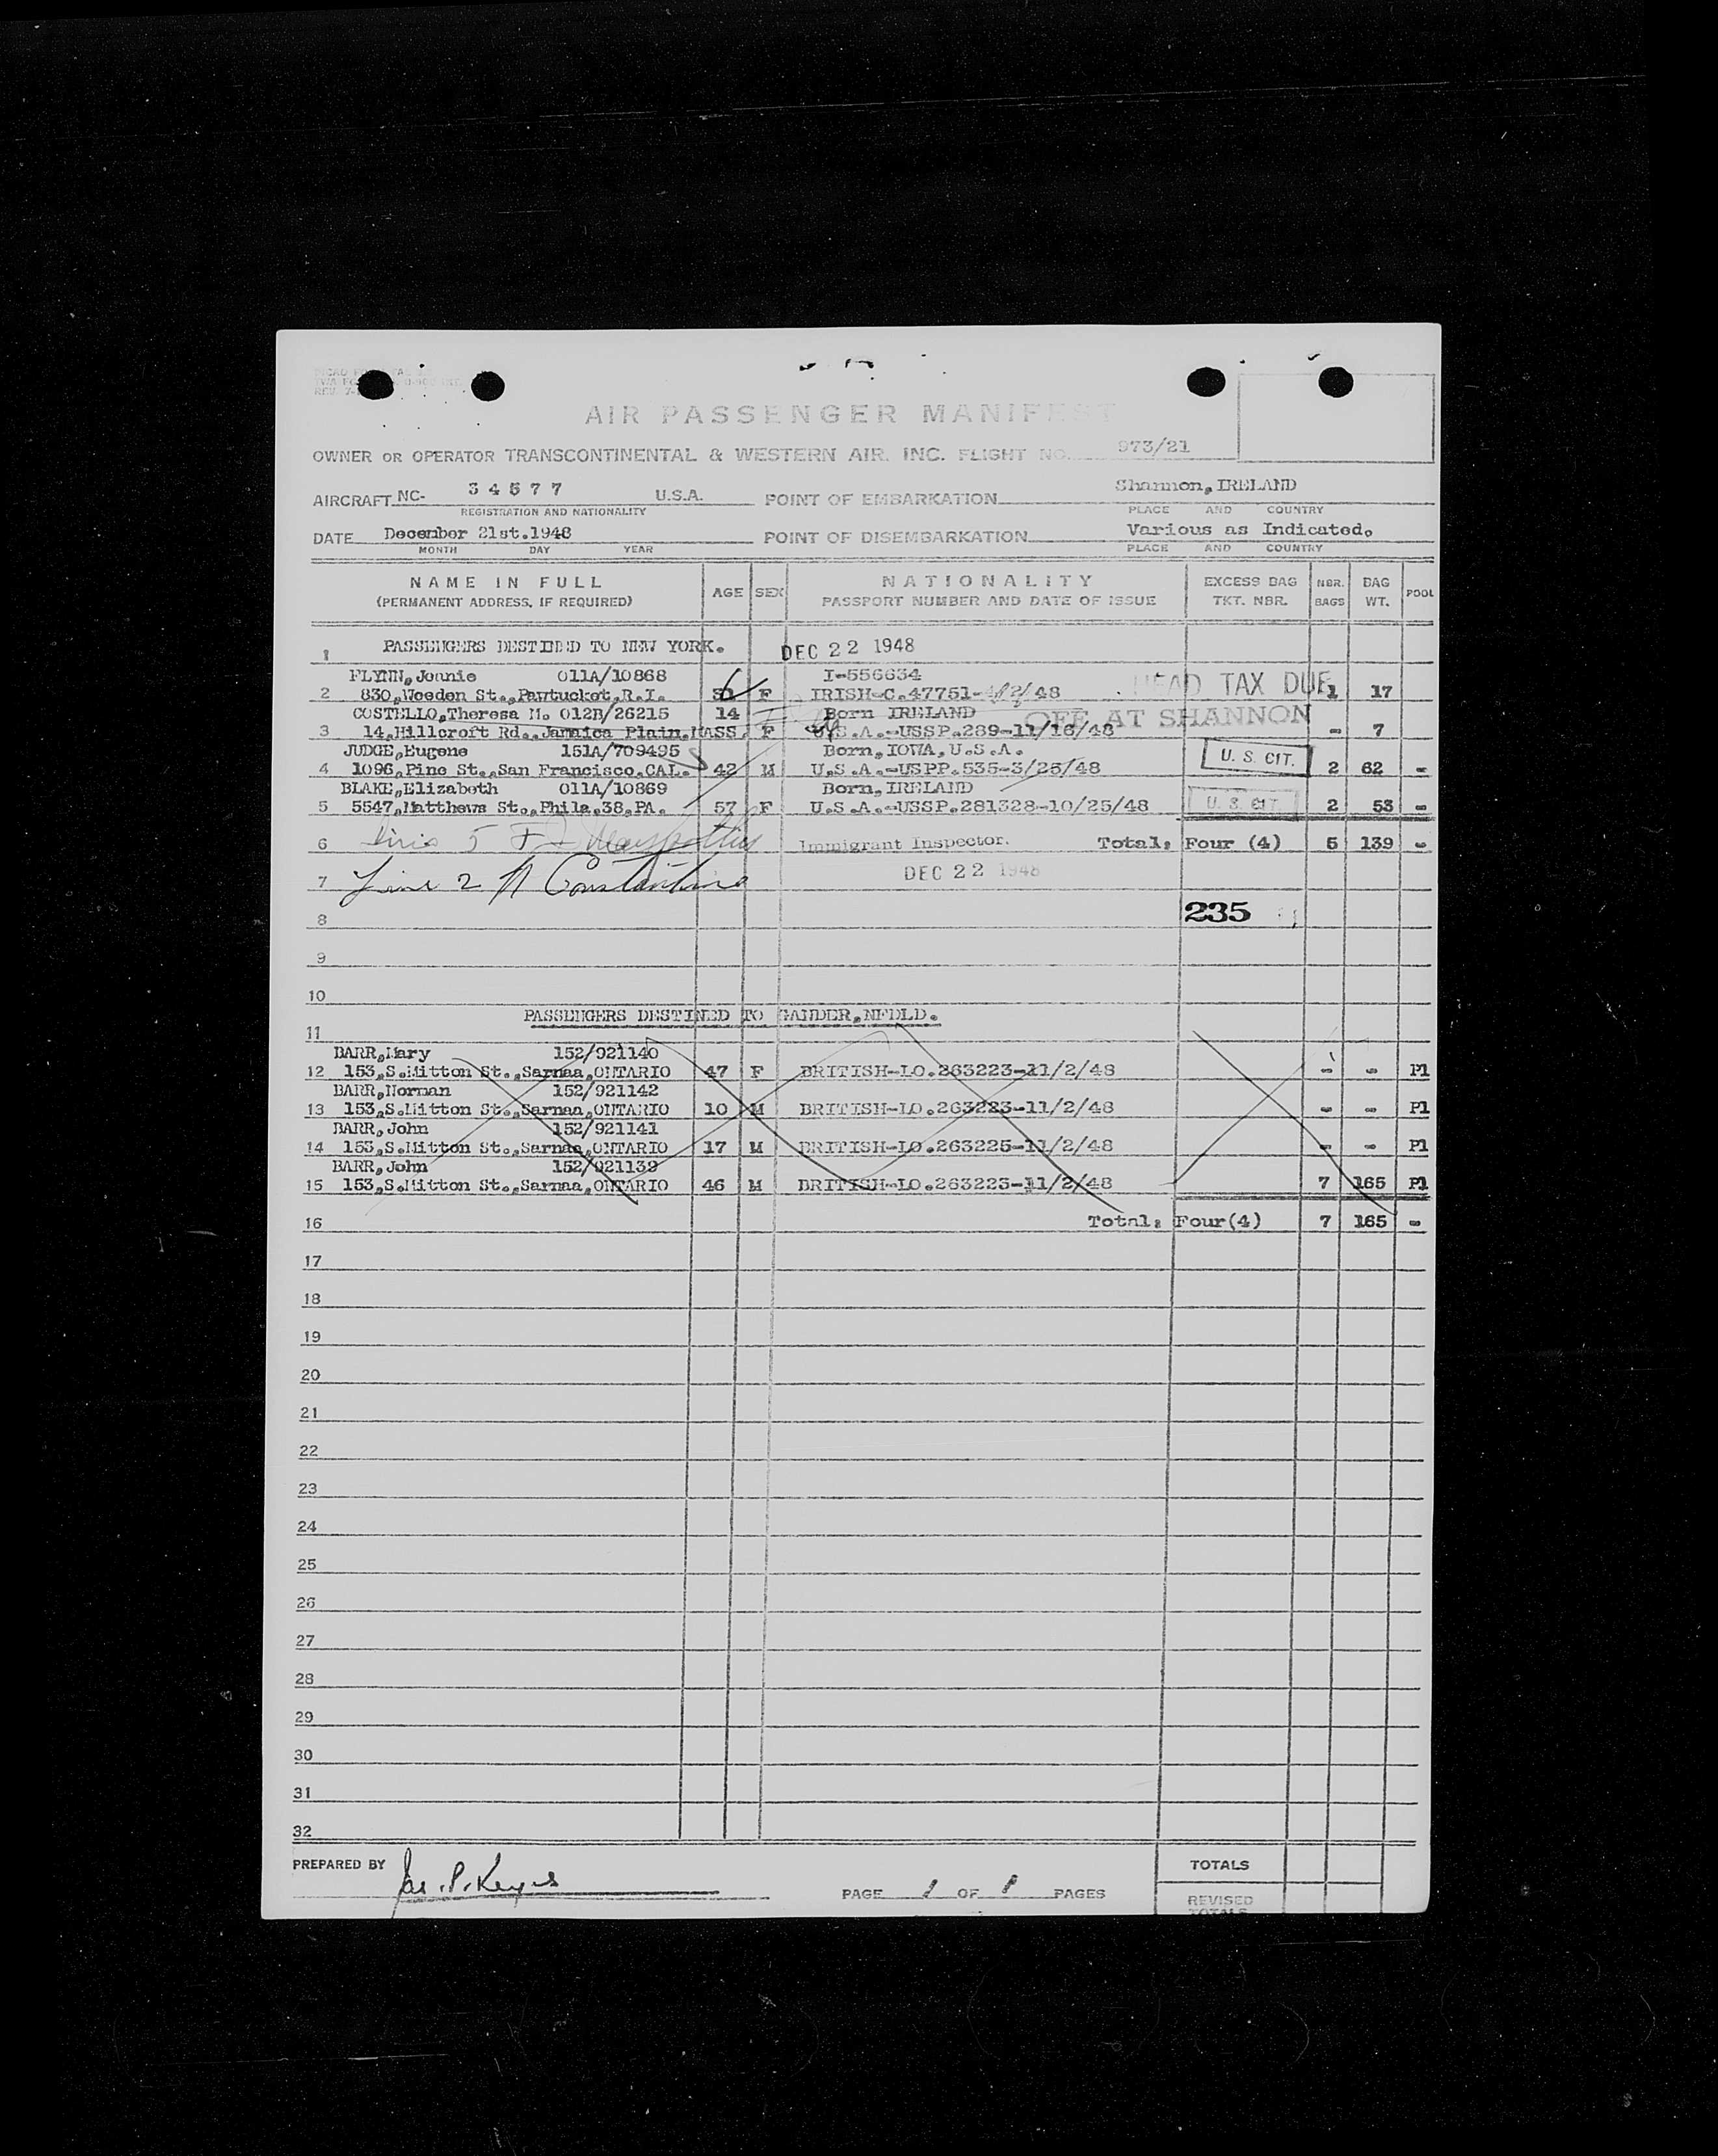 AIR PASSENGER MANIFEST
OWNER OR OPERATOR TRANSCONTINENTAL & WESTERN AIR. INC. FLIGHT NO. 973/21
AIRCRAFT NC- 34577 U.S.A. POINT OF EMBARKATION Shannon, IRELAND
REGISTRATION AND NATIONALITY PLACE AND COUNTRY
DATE December 21st.1948 POINT OF DISEMBARKATION Various as Indicated.
MONTH DAY YEAR PLACE AND COUNTRY
NAME IN FULL AGE SEX NATIONALITY EXCESS BAG NBR. BAG POOL
(PERMANENT ADDRESS, IF REQUIRED) PASSPORT NUMBER AND DATE OF ISSUE TKT. NBR. BAGS WT.
1 PASSENGERS DESTINED TO NEW YORK. DEC 22 1948
FLYNN,Jeanie 011A/10868 I-556634
2 830,Weeden St.,Pawtucket,R.I. F IRISH-C.47751- /2/48 HEAD TAX DUE 1 17
COSTELLO,Theresa M. 012B/26215 14 Born IRELAND OFF AT SHANNON
3 14,Hillcroft Rd.,Jamaica Plain,MASS. F U.S.A.-USSP.289-11/16/48 - 7
JUDGE,Eugene 151A/709495 Born,IOWA,U.S.A.
4 1096,Pine St.,San Francisco.CAL. 42 M U.S.A.-USPP.535-3/25/48 U. S. CIT. 2 62 -
BLAKE,Elizabeth 011A/10869 Born,IRELAND
5 5547,Matthews St.,Phila.38,PA. 57 F U.S.A.-USSP.281328-10/25/48 U. S. CIT. 2 53 -
6 5 Immigrant Inspector. Total: Four (4) 5 139 -
7 Line 2 A Constantine DEC 22 1948
8 235
9
10
PASSENGERS DESTINED TO GANDER,NFDLD.
11
BARR,Mary 152/921140
12 153,S.Mitton St.,Sarnaa,ONTARIO 47 F BRITISH-LO.263223-11/2/48 - - P1
BARR,Norman 152/921142
13 153,S.Mitton St.,Sarnaa,ONTARIO 10 M BRITISH-LO.263223-11/2/48 - - P1
BARR,John 152/921141
14 153,S.Mitton St.,Sarnaa,ONTARIO 17 M BRITISH-LO.263225-11/2/48 - - P1
BARR,John 152/921139
15 153,S.Mitton St.,Sarnaa,ONTARIO 46 M BRITISH-LO.263223-11/2/48 7 165 P1
16 Total: Four(4) 7 165 -
17
18
19
20
21
22
23
24
25
26
27
28
29
30
31
32
PREPARED BY Jas. P. Keyes TOTALS
PAGE 1 OF 1 PAGES REVISED
TOTALS